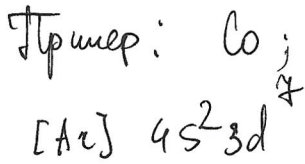 Пример: Co;
[Ar] 4s²3d⁷